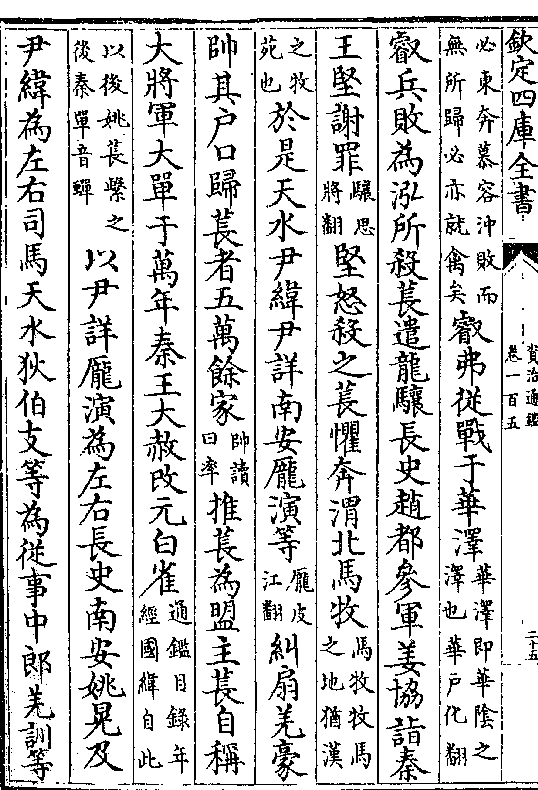 欽定四庫全書
資治通鑑
卷一百五
二十五
必東奔慕容沖敗而
無所歸必亦就禽矣
叡弗從戰于華澤
華澤即華陰之
澤也華戶化翻
叡兵敗為泓所殺萇遣龍驤長史趙都參軍姜協詣秦
王堅謝罪
驤思
將翻
堅怒殺之萇懼奔渭北馬牧
馬牧牧馬
之地猶漢
之牧
苑也
於是天水尹緯尹詳南安龎演等
龎皮
江翻
糾扇羌豪
帥其戶口歸萇者五萬餘家
帥讀
曰率
推萇為盟主萇自稱
大將軍大單于萬年秦王大赦改元白雀
通鑑目録年
經國緯自此
以後姚萇繫之
後秦單音蟬
以尹詳龎演為左右長史南安姚晃及
尹緯為左右司馬天水狄伯支等為從事中郎羌訓等